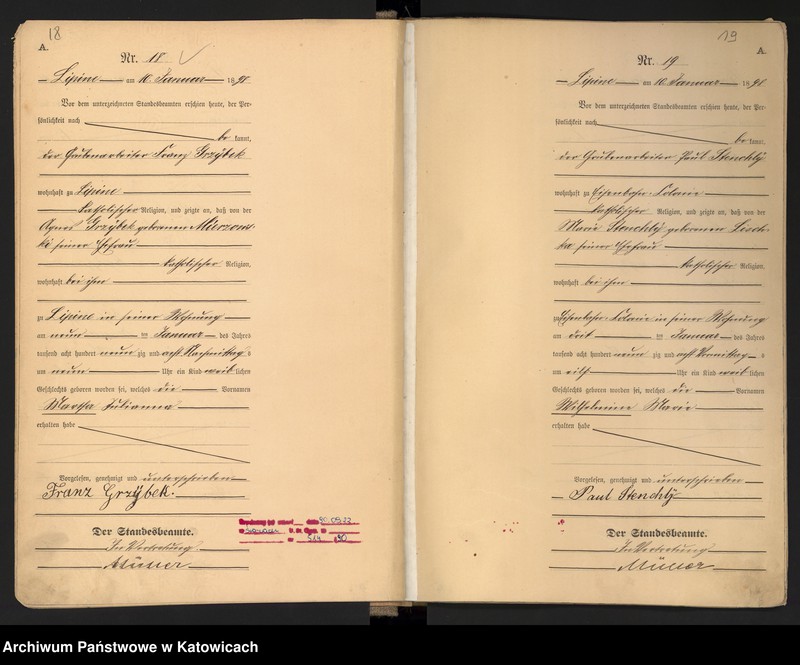 18
A.
Nr. 18
Lipine am 10. Januar 1898
Vor dem unterzeichneten Standesbeamten erschien heute, der Per-
sönlichkeit nach
be kannt,
der Grubenarbeiter Franz Grzÿbek
wohnhaft zu Lipine
katholischer Religion, und zeigte an, daß von der
Agnes Grzÿbek geborenen
seiner Ehefrau
katholischer Religion,
wohnhaft bei ihm
zu Lipine in seiner Wohnung
am neun ten Januar des Jahres
tausend acht hundert neun zig und acht Nachmittags
um neun Uhr ein Kind weib lichen
Geschlechts geboren worden sei, welches die Vornamen
Martha Julianna
erhalten habe
Vorgelesen, genehmigt und unterschrieben
Franz Grzÿbek.
Der Standesbeamte.
In Vertretung
Müller
19
A.
Nr. 19
Lipine am 10. Januar 1898
Vor dem unterzeichneten Standesbeamten erschien heute, der Per-
sönlichkeit nach
be kannt,
der Grubenarbeiter Paul Stenchlÿ
wohnhaft zu Eisenbahn-Colonie
katholischer Religion, und zeigte an, daß von der
Marie Stenchlÿ geborenen
seiner Ehefrau
katholischer Religion,
wohnhaft bei ihm
zu Eisenbahn-Colonie in seiner Wohnung
am drei ten Januar des Jahres
tausend acht hundert neun zig und acht Vormittag s
um elf Uhr ein Kind weib lichen
Geschlechts geboren worden sei, welches die Vornamen
Wilhelmine Marie
erhalten habe
Vorgelesen, genehmigt und unterschrieben
Paul Stenchlÿ
Der Standesbeamte.
In Vertretung
Müller
Archiwum Państwowe w Katowicach